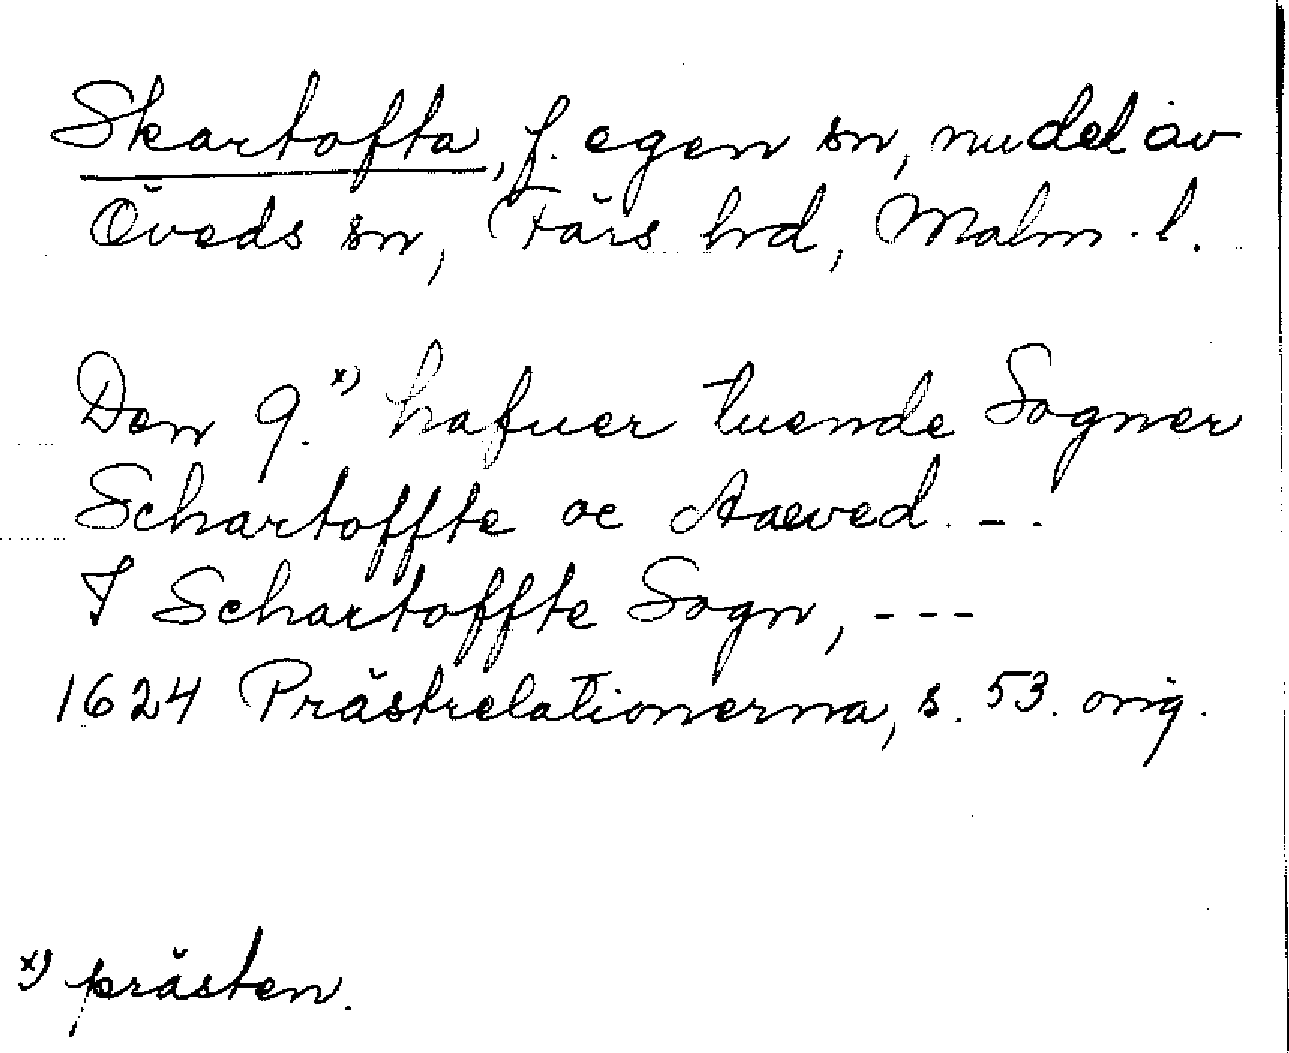 Skartofta, f. egen sn, nu del av
Öveds sn, Färs hd, Malm. l.
Den 9.x) hafuer tuende Sogner
Schartoffte oc Aaeved. - .
I Schartoffte Sogn, ---
1624 Prästrelationerna, s. 53. orig.
x) prästen.